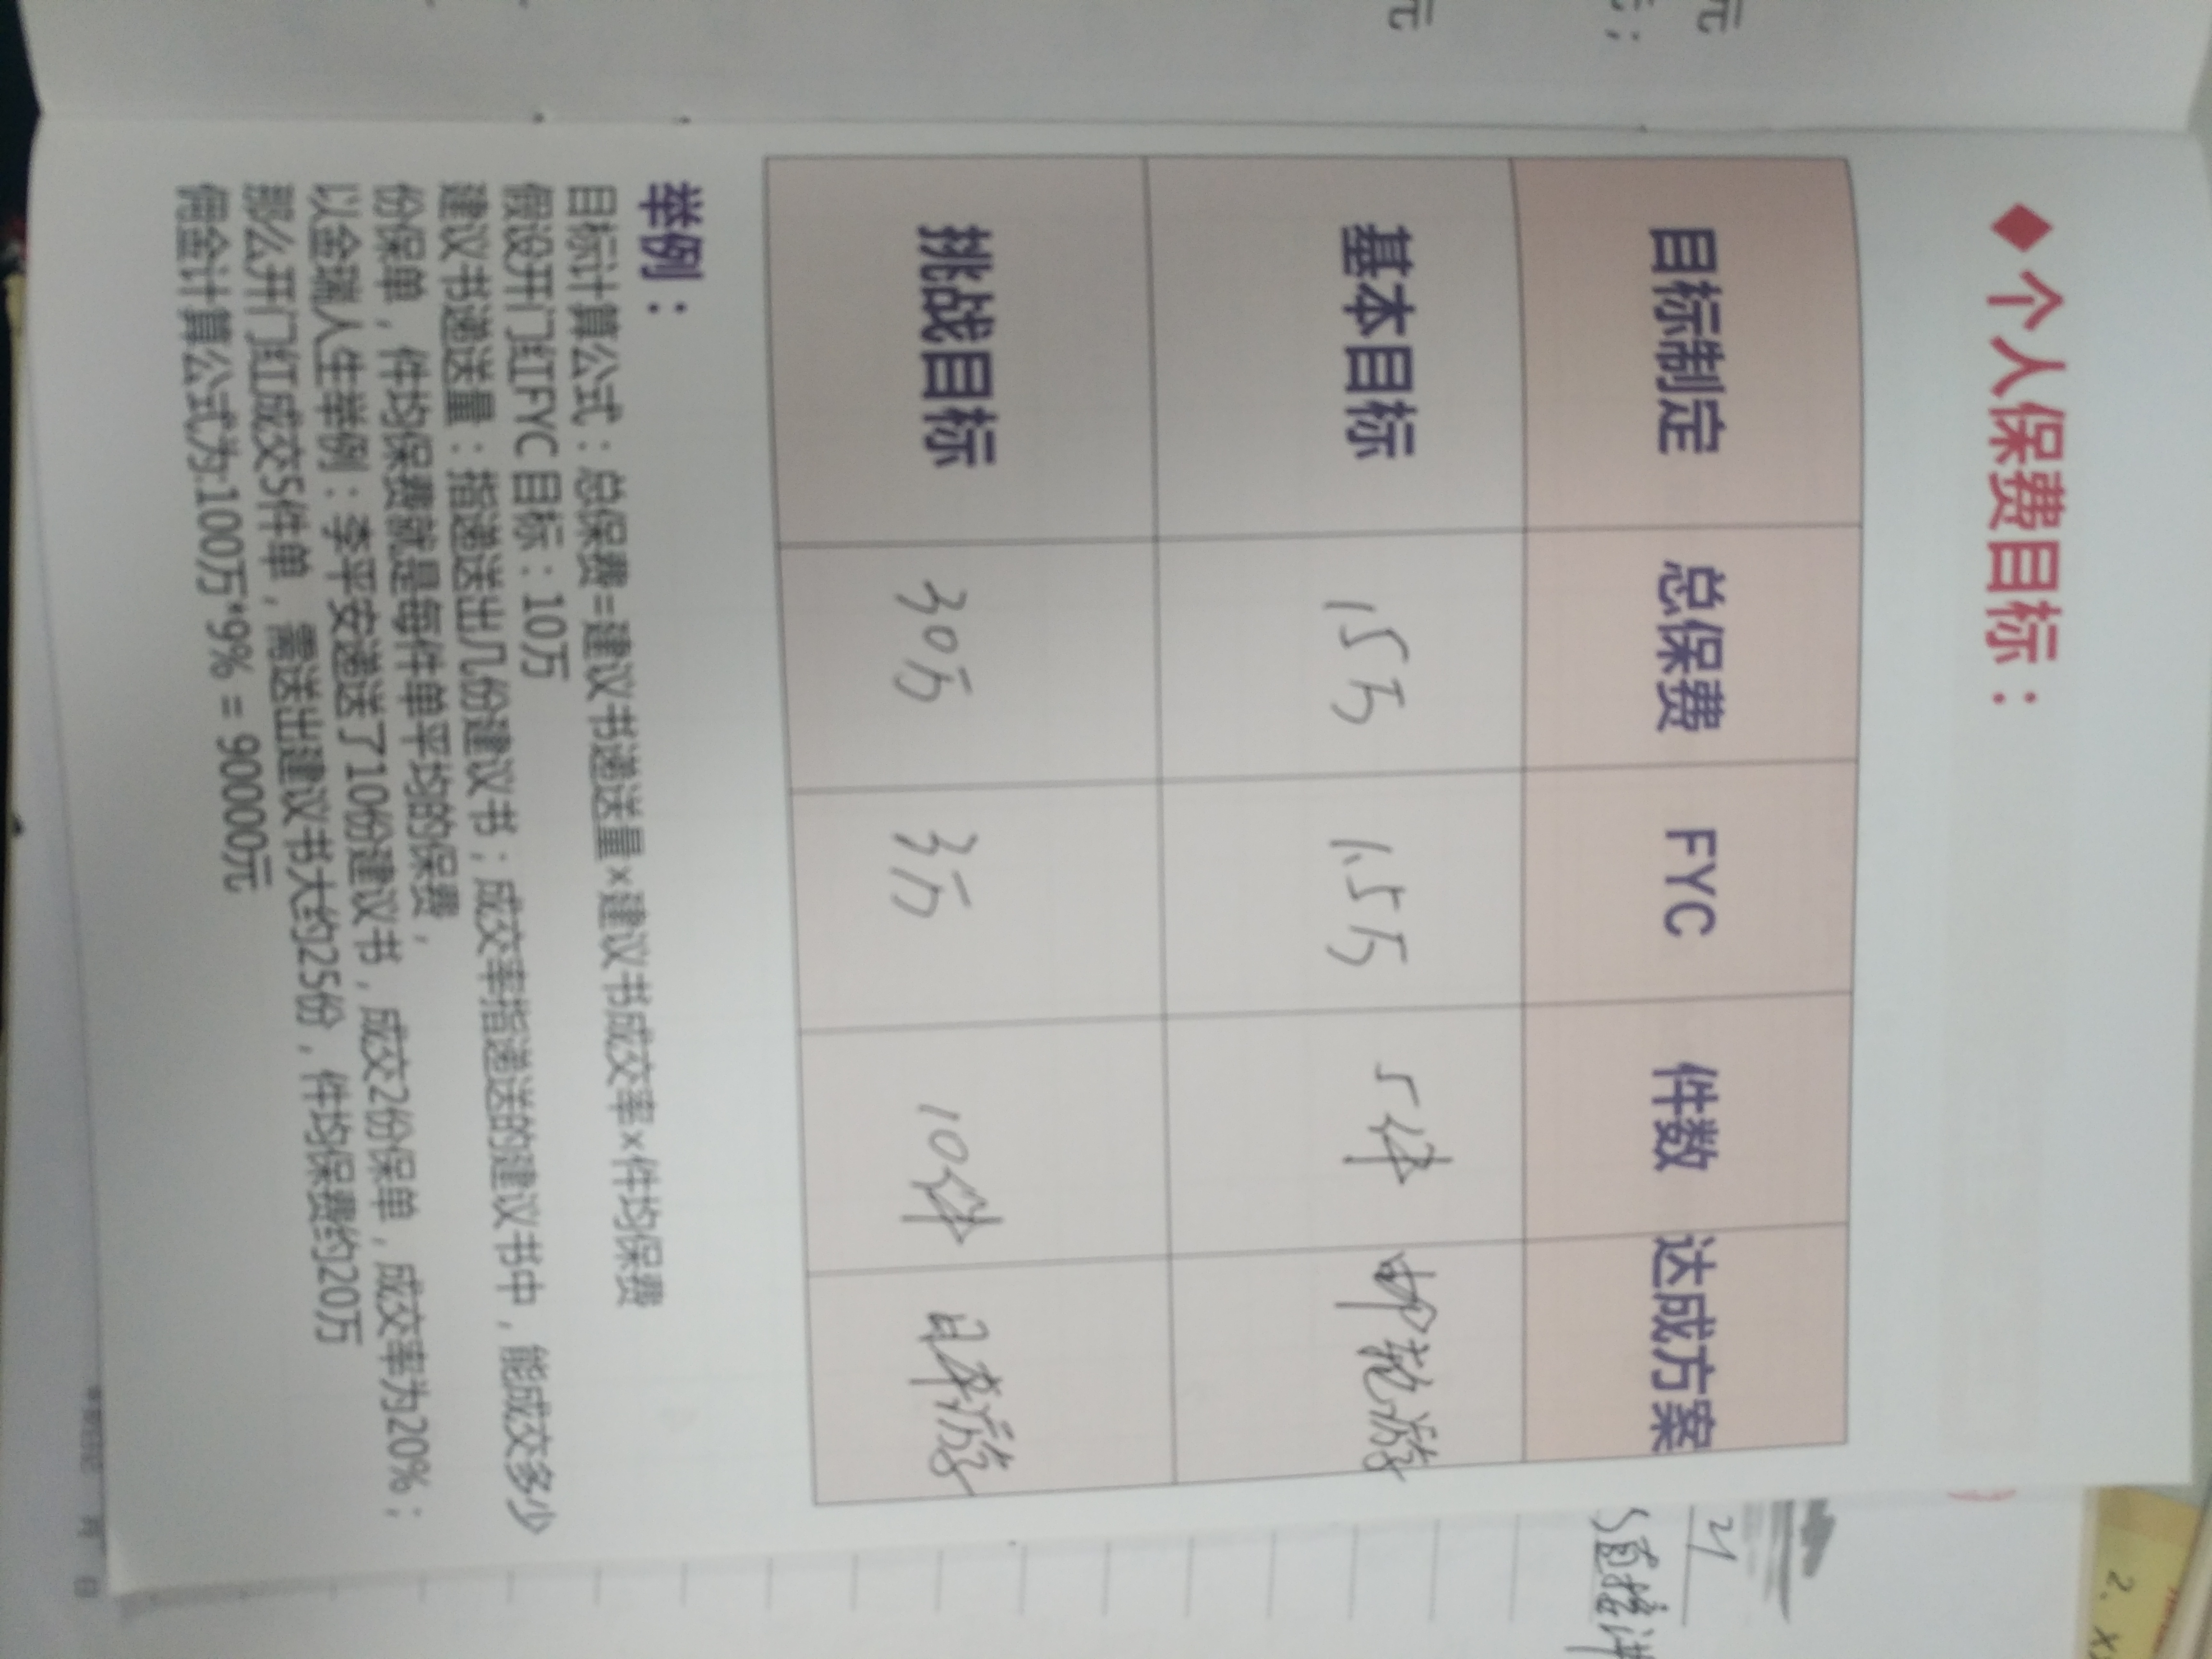 ◆个人保费目标：
目标制定 总保费 FYC 件数 达成方案
基本目标 15万 1.5万 5件 邮轮游
挑战目标 30万 3万 10件 日本游
举例：
目标计算公式：总保费=建议书递送量×建议书成交率×件均保费
假设开门红FYC 目标：10万
建议书递送量：指递送出几份建议书；成交率指递送的建议书中，能成交多少
份保单，件均保费就是每件单平均的保费，
以金瑞人生举例：李平安递送了10份建议书，成交2份保单，成交率为20%；
那么开门红成交5件单，需送出建议书大约25份，件均保费约20万
佣金计算公式为:100万*9% = 90000元
元
元
直接讲
2.